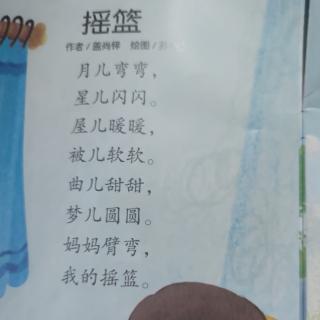 摇篮
作者/盖尚铎 绘图/
月儿弯弯，
星儿闪闪。
屋儿暖暖，
被儿软软。
曲儿甜甜，
梦儿圆圆。
妈妈臂弯，
我的摇篮。